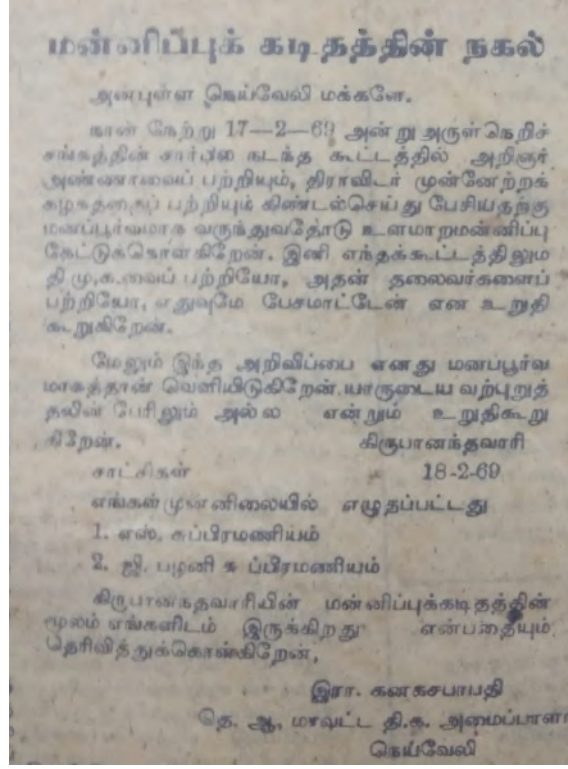 மன்னிப்புக் கடிதத்தின் நகல்
அன்புள்ள நெய்வேலி மக்களே.
நான் நேற்று 17—2—69 அன்று அருள்நெறிச்
சங்கத்தின் சார்பில நடந்த கூட்டத்தில் அறிஞர்
அண்ணாவைப் பற்றியும், திராவிடர் முன்னேற்றக்
கழகத்தைப் பற்றியும் கிண்டல்செய்து பேசியதற்கு
மனப்பூர்வமாக வருந்துவதோடு உளமாறமன்னிப்பு
கேட்டுக்கொள்கிறேன். இனி எந்தக்கூட்டத்திலும
தி மு.க.வைப் பற்றியோ, அதன் தலைவர்களைப்
பற்றியோ, எதுவுமே பேசமாட்டேன் என உறுதி
கூறுகிறேன்.
மேலும் இந்த அறிவிப்பை எனது மனப்பூர்வ
மாகத்தான் வெளியிடுகிறேன். யாருடைய வற்புறுத்
தலின் பேரிலும் அல்ல என்றும் உறுதிகூறு
கிறேன். கிருபானந்தவாரி
சாட்சிகள் 18-2-69
எங்கள்முன்னிலையில் எழுதப்பட்டது
1. எஸ். சுப்பிரமணியம்
2. ஜி. பழனி சுப்பிரமணியம்
கிருபானந்தவாரியின் மன்னிப்புக்கடிதத்தின்
மூலம் எங்களிடம் இருக்கிறது என்பதையும்
தெரிவித்துக்கொள்கிறேன்,
இரா. கனகசபாபதி
தெ. ஆ, மாவட்ட தி.க. அமைப்பாள
நெய்வேலி